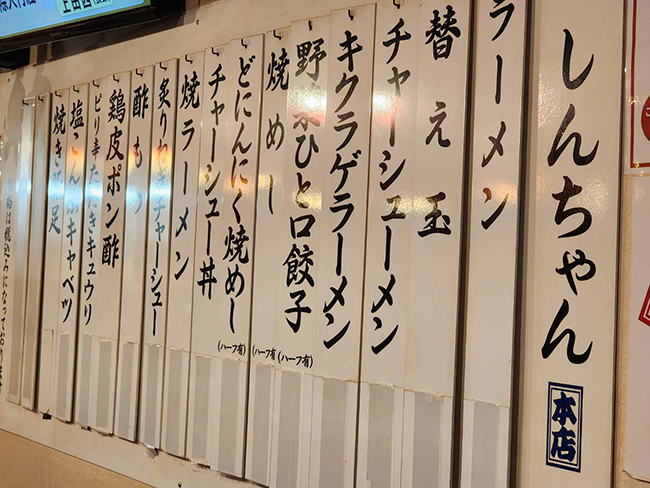 しんちゃん
本店
ラーメン
替え玉
チャーシューメン
キクラゲラーメン
野菜ひと口餃子
(ハーフ有)
焼めし
(ハーフ有)
どにんにく焼めし
(ハーフ有)
チャーシュー丼
焼ラーメン
炙りねぎチャーシュー
酢もつ
鶏皮ポン酢
ピリ辛たたきキュウリ
塩こんぶキャベツ
焼き豚足
価格は税込みになっております